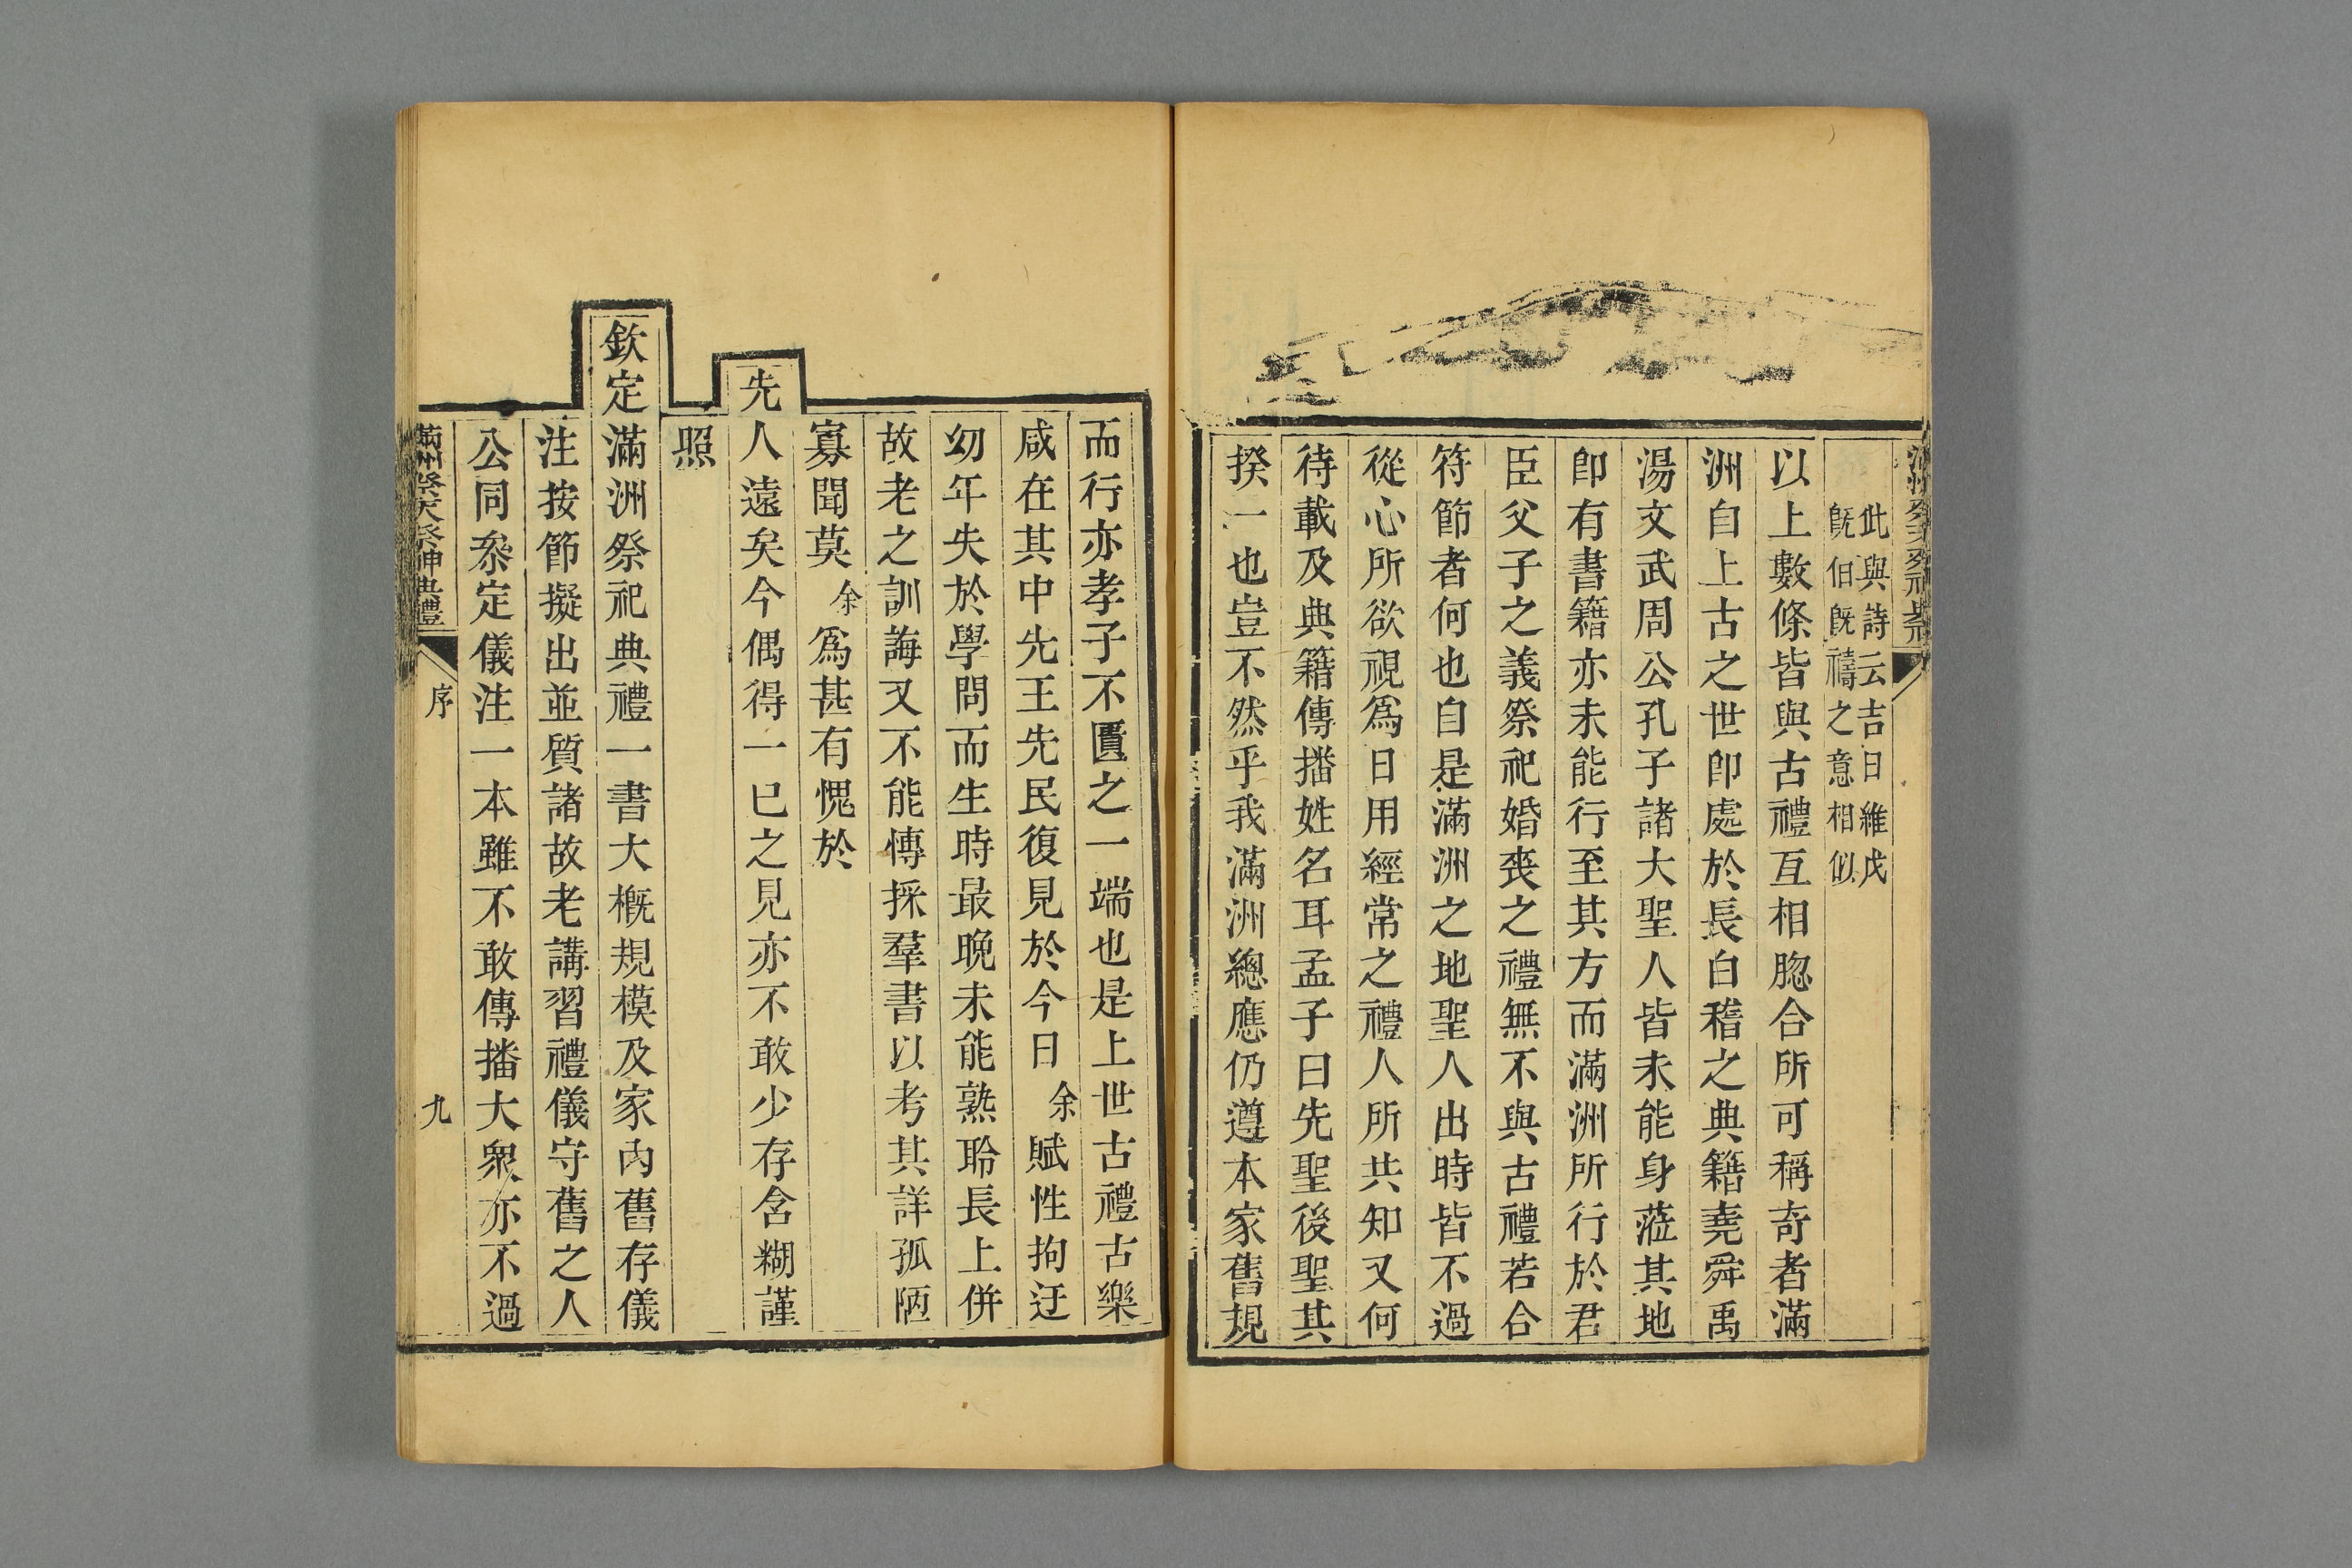 此與詩云吉日維戊
既伯既禱之意相似
以上數條皆與古禮互相脗合所可稱奇者滿
洲自上古之世卽處於長白稽之典籍堯舜禹
湯文武周公孔子諸大聖人皆未能身蒞其地
卽有書籍亦未能行至其方而滿洲所行於君
臣父子之義祭祀婚喪之禮無不與古禮若合
符節者何也自是滿洲之地聖人出時皆不過
從心所欲視爲日用經常之禮人所共知又何
待載及典籍傳播姓名耳孟子曰先聖後聖其
揆一也豈不然乎我滿洲總應仍遵本家舊規
而行亦孝子不匱之一端也是上世古禮古樂
咸在其中先王先民復見於今日余賦性拘迂
幼年失於學問而生時最晚未能熟聆長上併
故老之訓誨又不能慱採羣書以考其詳孤陋
寡聞莫余爲甚有愧於
先人遠矣今偶得一已之見亦不敢少存含糊謹
照
欽定滿洲祭祀典禮一書大槪規模及家內舊存儀
注按節擬出並質諸故老講習禮儀守舊之人
公同叅定儀注一本雖不敢傳播大衆亦不過
滿洲祭天祭神典禮
序
九